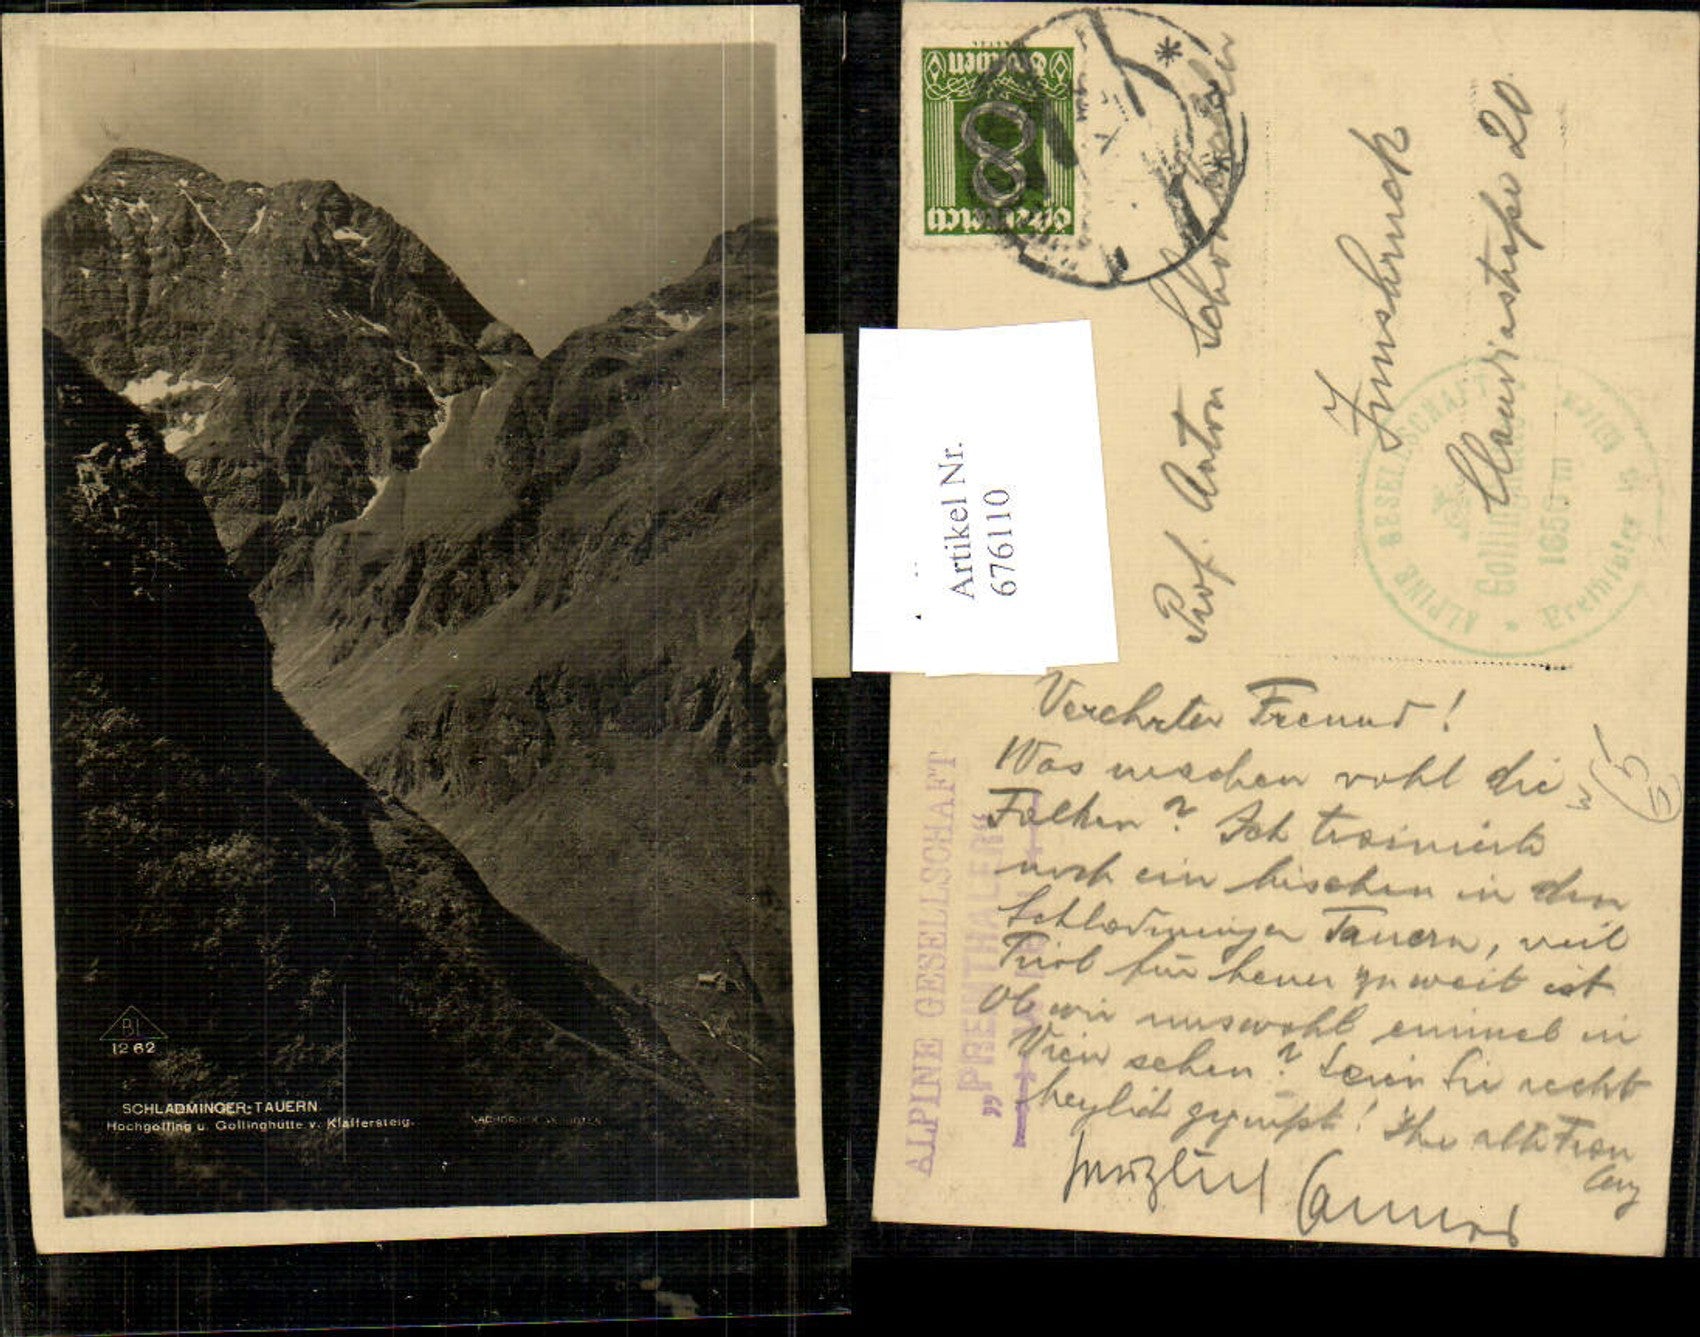 BL
1262
SCHLADMINGER-TAUERN
Hochgolling u. Gollinghütte v. Klaffersteig.
NACHDRUCK VERBOTEN
Groschen
8
Österreich
Artikel Nr.
676110
Prof. Anton
Innsbruck
Claudiastraße 20.
ALPINE GESELLSCHAFT
Gollinghütte
1656 m
ALPINE GESELLSCHAFT
„PREINTHALER“
Verehrter Freund!
Was machen wohl die
Falken? Ich trainierte
noch ein bischen in den
Schladminger Tauern, weil
Tirol für heuer zu weit ist
Ob wir uns wohl einmal in
Wien sehen? Seien Sie recht
herzlich gegrüßt! Ihre alte Frau
herzlichst